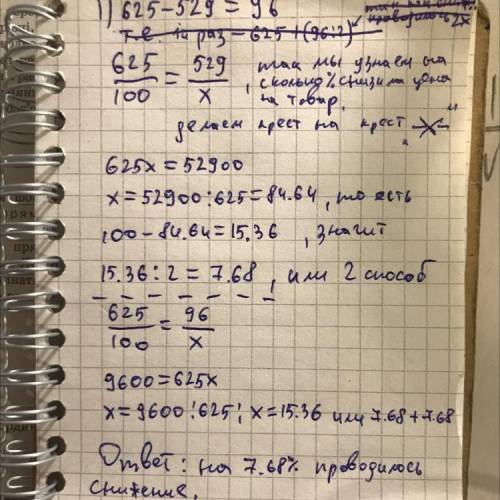 1) 625-529=96
т.е. 1й раз = 625+(96:2)
проводилось 2х
625/100 = 529/x, так мы узнаем на
сколько % снизила цена
на товар.
делаем крест на крест „X“
625x=52900
x=52900:625=84.64, то есть
100-84.64=15.36, значит
15.36:2=7.68, или 2 способ
625/100 = 96/x
9600=625x
x=9600:625; x=15.36 или 7.68+7.68
Ответ: на 7.68% проводилось
снижение.